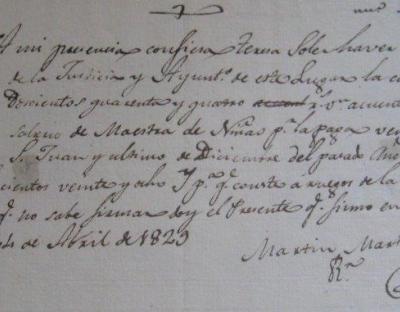 A mi presencia confiesa Teresa Soler haver
de la Justicia y Ayunt.º de este Lugar la c
Doscientos quarenta y quatro r.s v.n a cuenta
Salario de Maestra de Niñas p.r la paga ven
S. Juan y ultimo de Diciembre del pasado Año
cientos veinte y ocho Y p.a q.e conste a ruegos de la
q.e no sabe firmar doy el Presente q.e firmo en
4 de Abril de 1829
Martin Mart